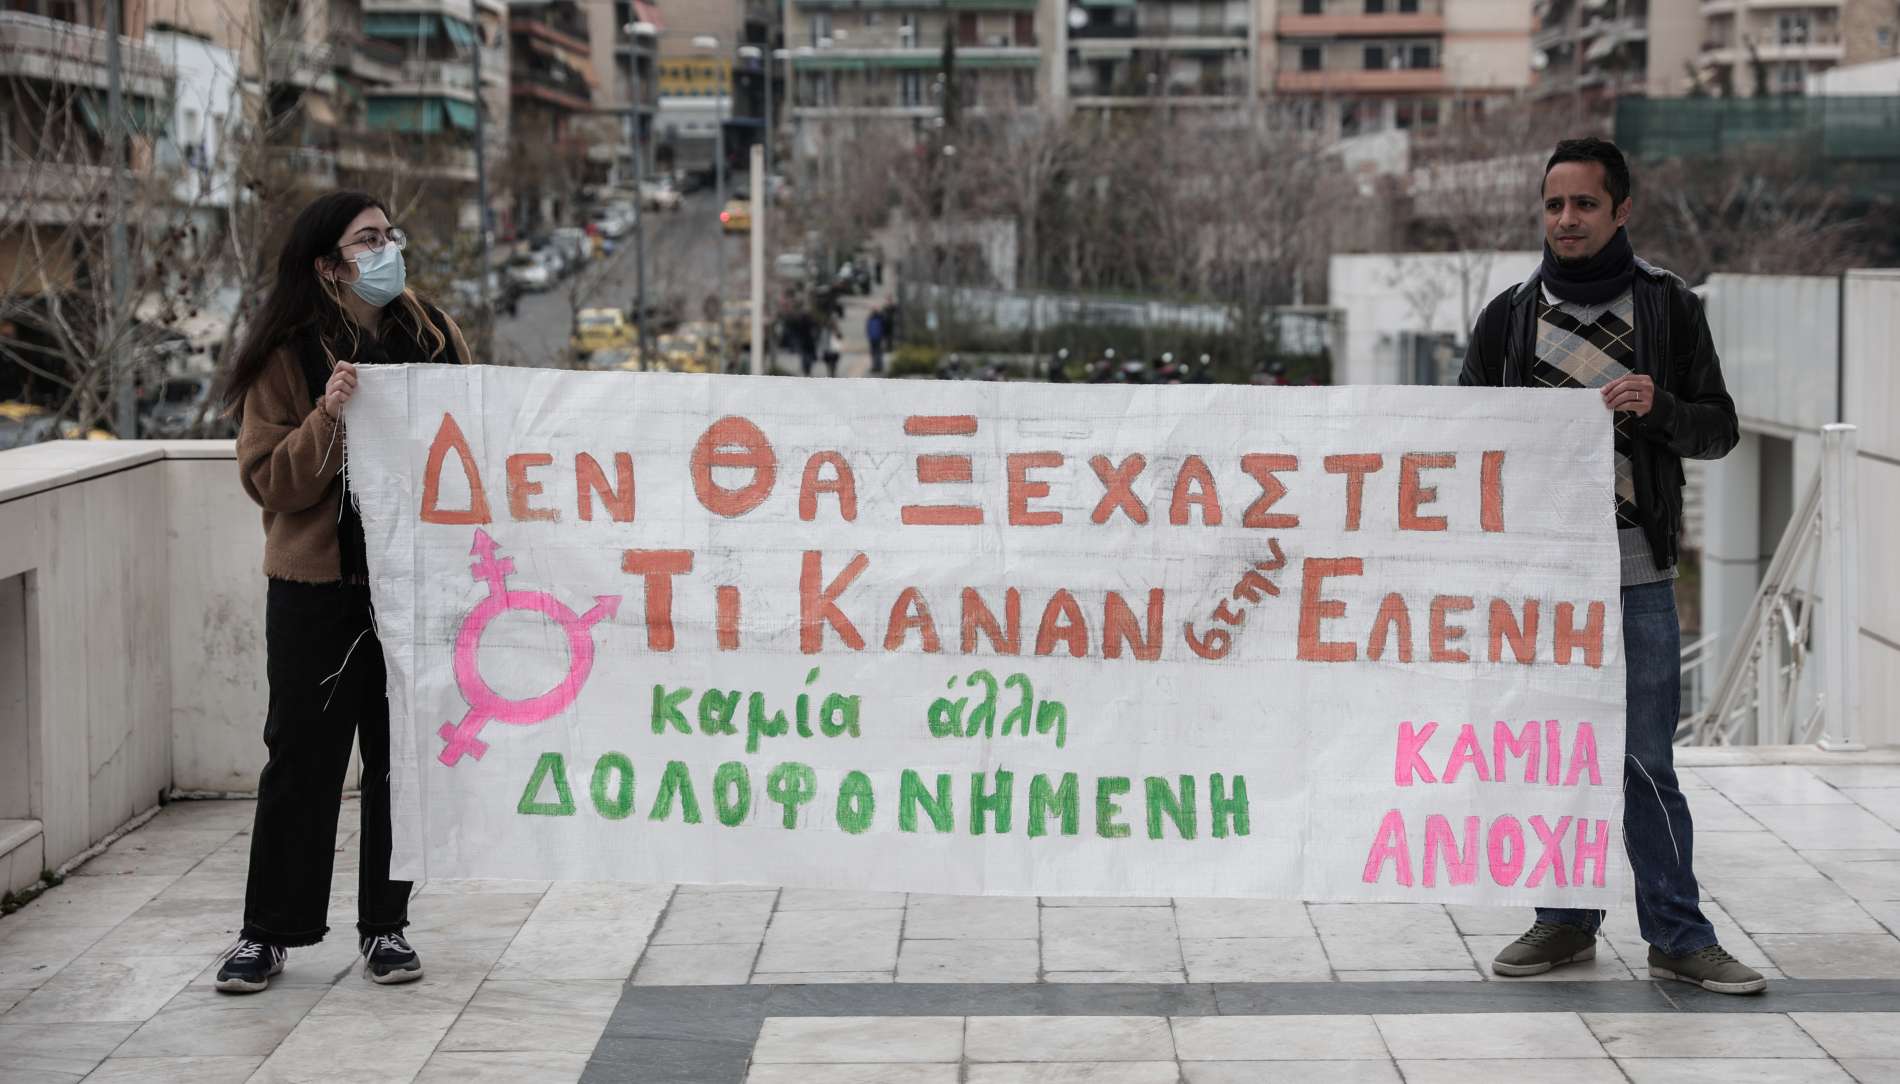 ΔΕΝ ΘΑ ΞΕΧΑΣΤΕΙ
ΤΙ ΚΑΝΑΝ στην ΕΛΕΝΗ
καμία άλλη
ΔΟΛΟΦΟΝΗΜΕΝΗ
ΚΑΜΙΑ
ΑΝΟΧΗ